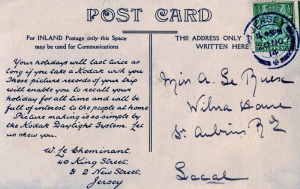 POST CARD
For INLAND Postage only this Space
may be used for Communications
THE
WRITTEN HERE.
Your holidays will last twice as
long if you take a Kodak with you
These pictures of your trip
will enable you to recall your
holiday for all time and will be
full of interest to the people at home
Picture making is so simple by
the Kodak Daylight System. Let
us show you.
W. Le Cheminant,
40 King Street,
& 2 New Street,
Jersey
JERSEY
14
Miss A. Le
St Aubins Rd
Local